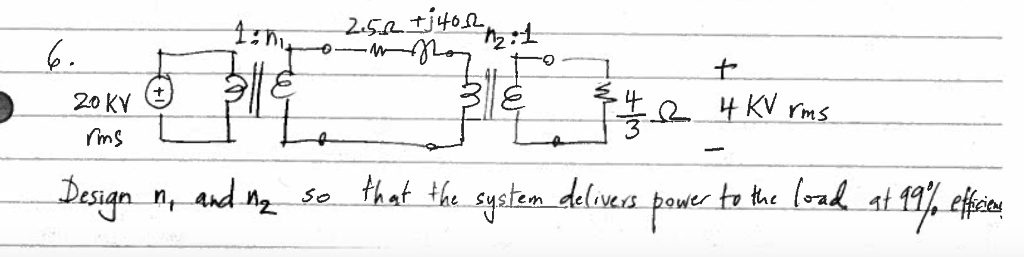 1:n₁ 2.5Ω +j40Ω n₂:1
6.
+
20 KV + - 4/3 Ω 4 KV rms
rms -
Design n₁ and n₂ so that the system delivers power to the load at 99%